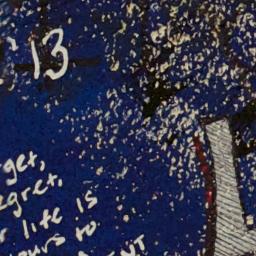 13
get,
egret.
r life is
ours to